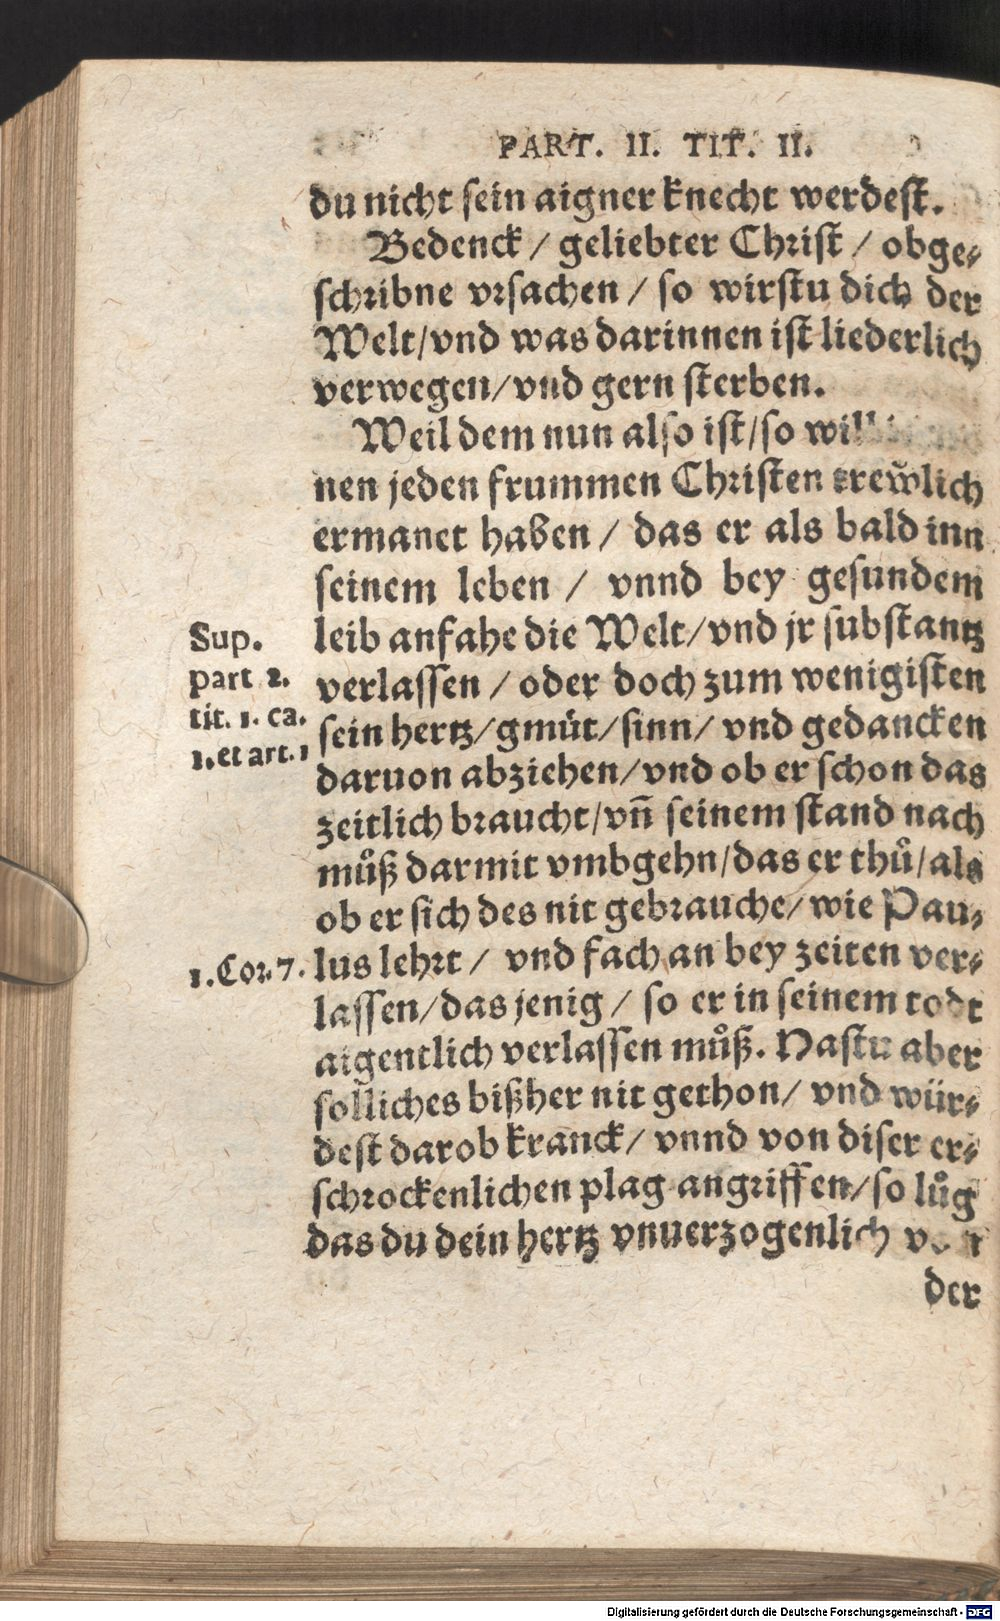 PART. II. TIT. II.
du nicht sein aigner knecht werdest.
Bedenck / geliebter Christ / obge⸗
schribne vrsachen / so wirstu dich der
Welt/vnd was darinnen ist liederlich
verwegen/vnd gern sterben.
Weil dem nun also ist/so will
nen jeden frummen Christen trewlich
ermanet haben / das er als bald inn
seinem leben / vnnd bey gesundem
leib anfahe die Welt/vnd jr substantz
verlassen / oder doch zum wenigisten
sein hertz/gmüt/sinn/ vnd gedancken
daruon abziehen/vnd ob er schon das
zeitlich braucht/vn̄ seinem stand nach
můß darmit vmbgehn/das er thů/als
ob er sich des nit gebrauche/wie Pau⸗
lus lehrt / vnd fach an bey zeiten ver⸗
lassen/das jenig / so er in seinem todt
aigentlich verlassen můß. Hastu aber
solliches bißher nit gethon/ vnd wür⸗
dest darob kranck/ vnnd von diser er⸗
schrockenlichen plag angriffen/so lůg
das du dein hertz vnuerzogenlich
der
Sup.
part 2.
tit. 1. ca.
1. et art. 1
1. Cor. 7.
Digitalisierung gefördert durch die Deutsche Forschungsgemeinschaft - DFG